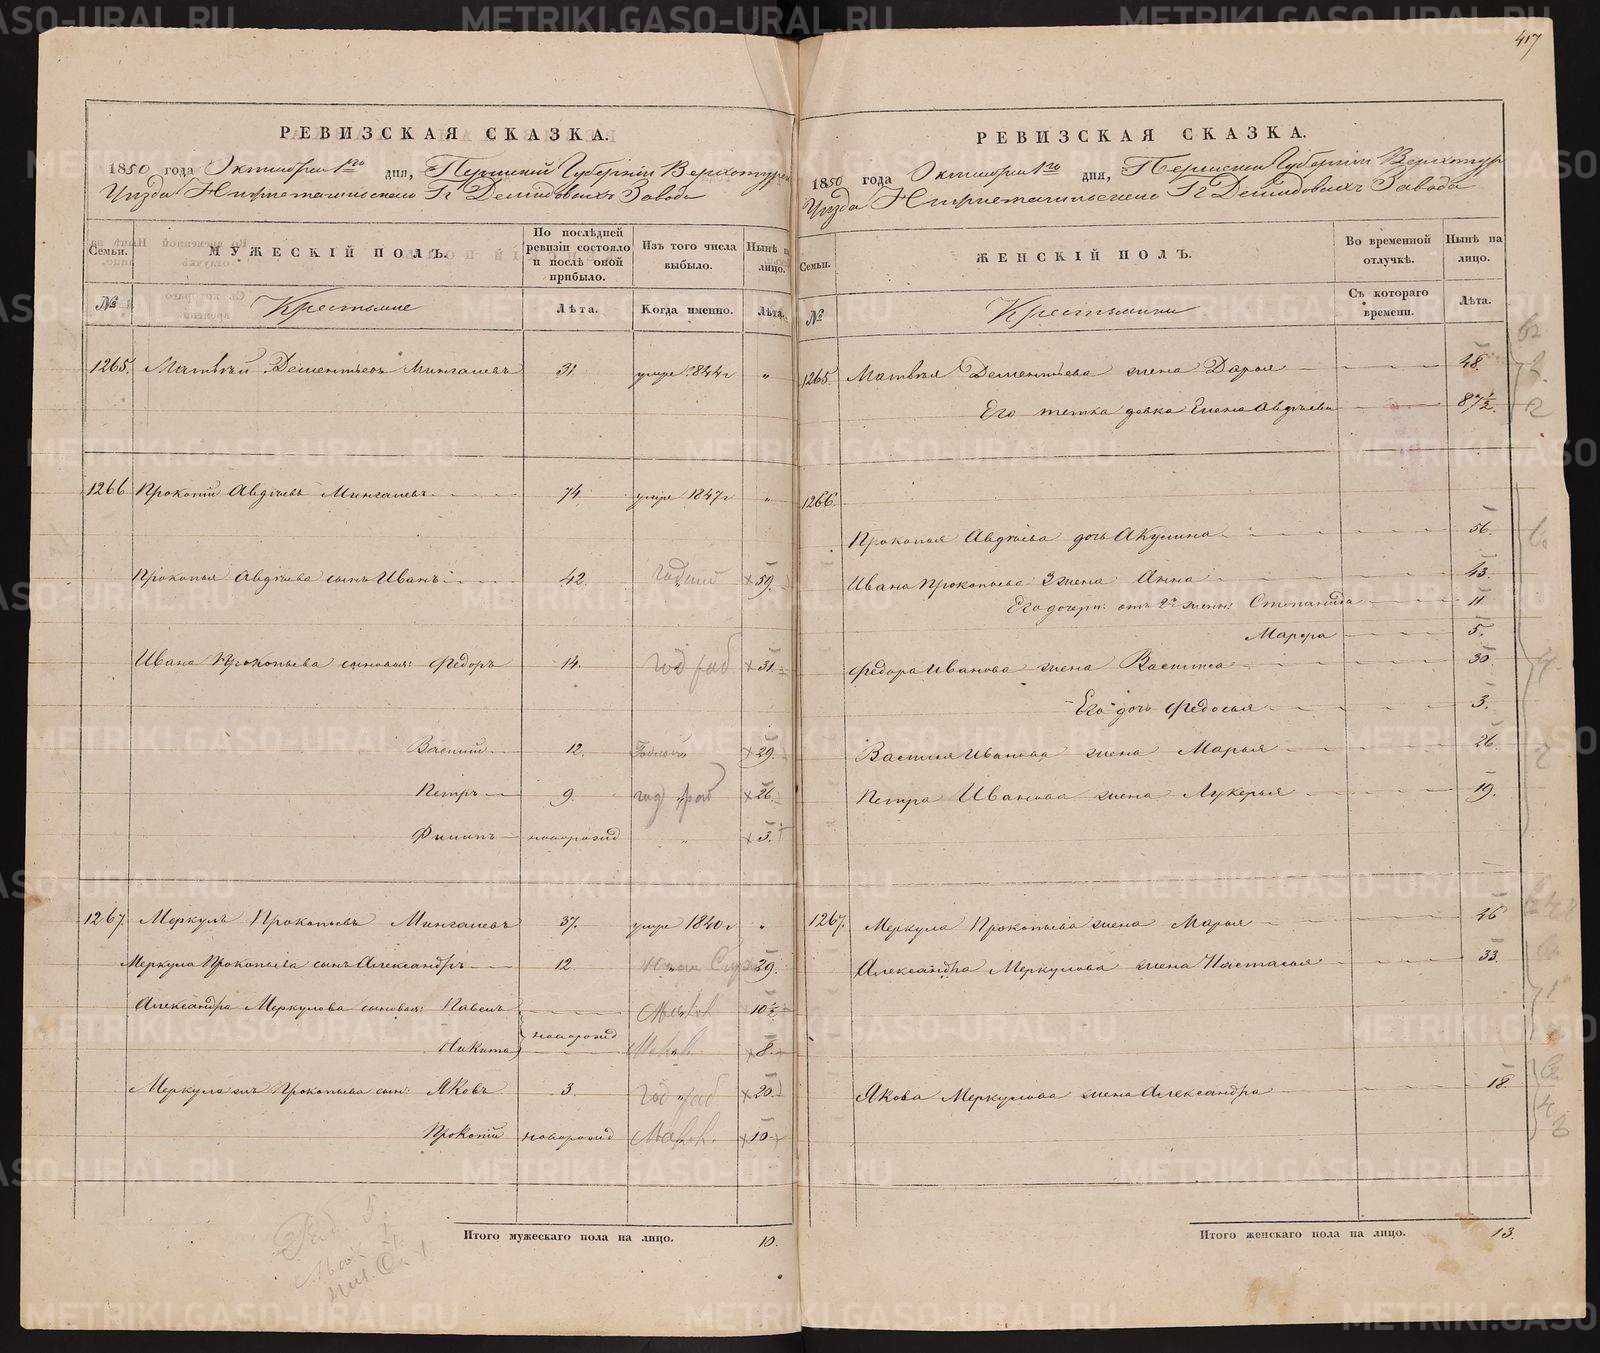 417
РЕВИЗСКАЯ СКАЗКА.
1850 года Октября 1го дня, Пермской Губернiи Верхотурск
Уезда Нижнетагильскаго Гг Демидовыхъ Завода
Семьи.
МУЖЕСКIЙ ПОЛЪ.
По послѣдней ревизiи состояло и послѣ оной прибыло.
Изъ того числа выбыло.
Нынѣ на лицо.
№
Крестьяне
Лѣта.
Когда именно.
Лѣта.
1265. Матвѣй Дементьевъ Мингалевъ 31. умре 1844г "
1266 Прокопiй Авдѣевъ Мингалевъ 74. умре 1847г "
Прокопья Авдѣева сынъ Иванъ 42. годный 59.
Ивана Прокопьева сыновья: Федоръ 14. год раб 31.
Василiй 12. 29.
Петръ 9. год раб 26.
Филипъ новорожд " 3.
1267. Меркулъ Прокопьевъ Мингалевъ 37. умре 1840г "
Меркула Прокопьева сынъ Александръ 12. 29.
Александра Меркулова сыновья: Павелъ 10½
новорожд
Никита 8.
Меркула Прокопьева сын: Яковъ 3. год раб 20.
Прокопiй новорожд 10
Итого мужескаго пола на лицо. 10.
РЕВИЗСКАЯ СКАЗКА.
1850 года Октября 1го дня, Пермской Губернiи Верхотур
Уезда Нижнетагильскаго Гг Демидовыхъ Завода
Семьи.
ЖЕНСКIЙ ПОЛЪ.
Во временной отлучкѣ.
Нынѣ на лицо.
№
Крестьянки
Съ котораго времени.
Лѣта.
1265 Матвѣя Дементьева жена Дарья 48.
Его тетка девка Елена Авдѣева 87½.
1266.
Прокопья Авдѣева дочь Акулина 56.
Ивана Прокопьева 3 жена Анна 43.
Его дочери: отъ 2й жены: Степанида 11
Марфа 5.
Федора Иванова жена Василиса 30.
Его дочь Федосья 3.
Василья Иванова жена Марья 26.
Петра Иванова жена Лукерья 19.
1267. Меркула Прокопьева жена Марья 46
Александра Меркулова жена Настасья 33
Якова Меркулова жена Александра 18.
Итого женскаго пола на лицо. 13.
METRIKI.GASO-URAL.RU